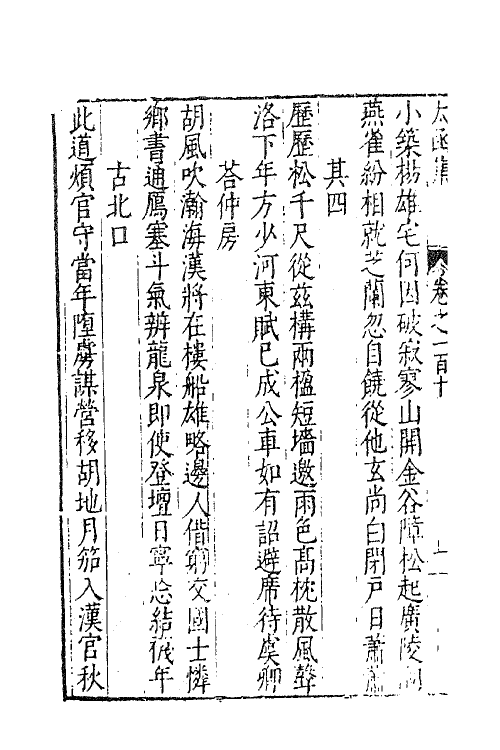 太函集 卷之一百十
小築楊雄宅何因破寂寥山開金谷障松起廣陵
燕雀紛相就芝蘭忽自饒從他玄尚白閉戶日蕭蕭
其四
歷歷松千尺從茲構兩楹短墻邀雨色高枕散風聲
洛下年方少河東賦已成公車如有詔避席待虞卿
荅仲房
胡風吹瀚海漢將在樓船雄略邊人借窮交國士憐
鄉書通鴈塞斗氣辨龍泉即使登壇日寧忘結襪年
古北口
此道煩官守當年墮虜謀營移胡地月笳入漢宫秋